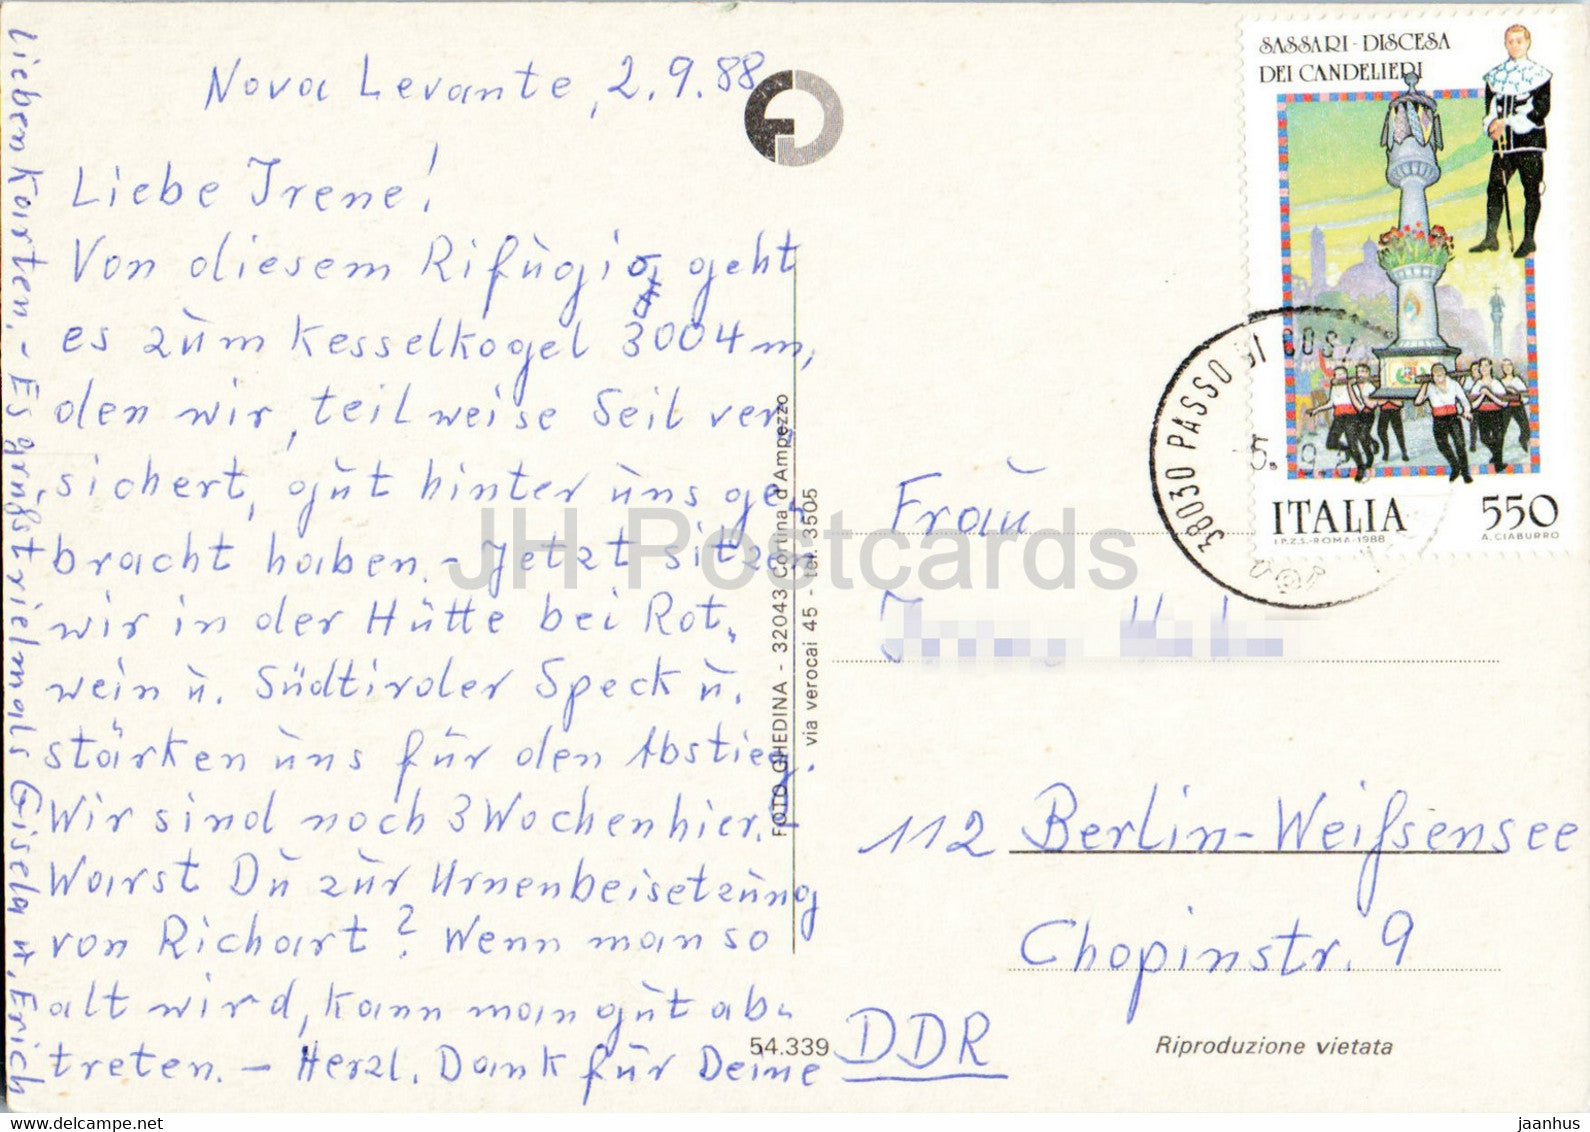 Nova Levante, 2.9.88
Liebe Irene!
Von diesem Rifugio geht
es zum Kesselkogel 3004m,
den wir, teilweise Seil ver-
sichert, gut hinter uns ge-
bracht haben. - Jetzt sitzen
wir in der Hütte bei Rot-
wein u. Südtiroler Speck u.
stärken uns für den Abstieg.
Wir sind noch 3 Wochen hier. -
Warst Du zur Urnenbeisetzung
von Richart? Wenn man so
alt wird, kann man gut ab-
treten. - Herzl. Dank für Deine
lieben Karten. - Es grüßt vielmals Gisela u. Erich
FOTO GHEDINA - 32043 Cortina d'Ampezzo
via verocai 45 - tel. 3505
54.339
SASSARI - DISCESA
DEI CANDELIERI
ITALIA 550
I.P.Z.S.-ROMA-1988 A. CIABURRO
38030 PASSO DI COST
5. 9.
Frau
112 Berlin-Weißensee
Chopinstr. 9
DDR
Riproduzione vietata
JH Postcards
www.jhpostcards.com
jaanhus